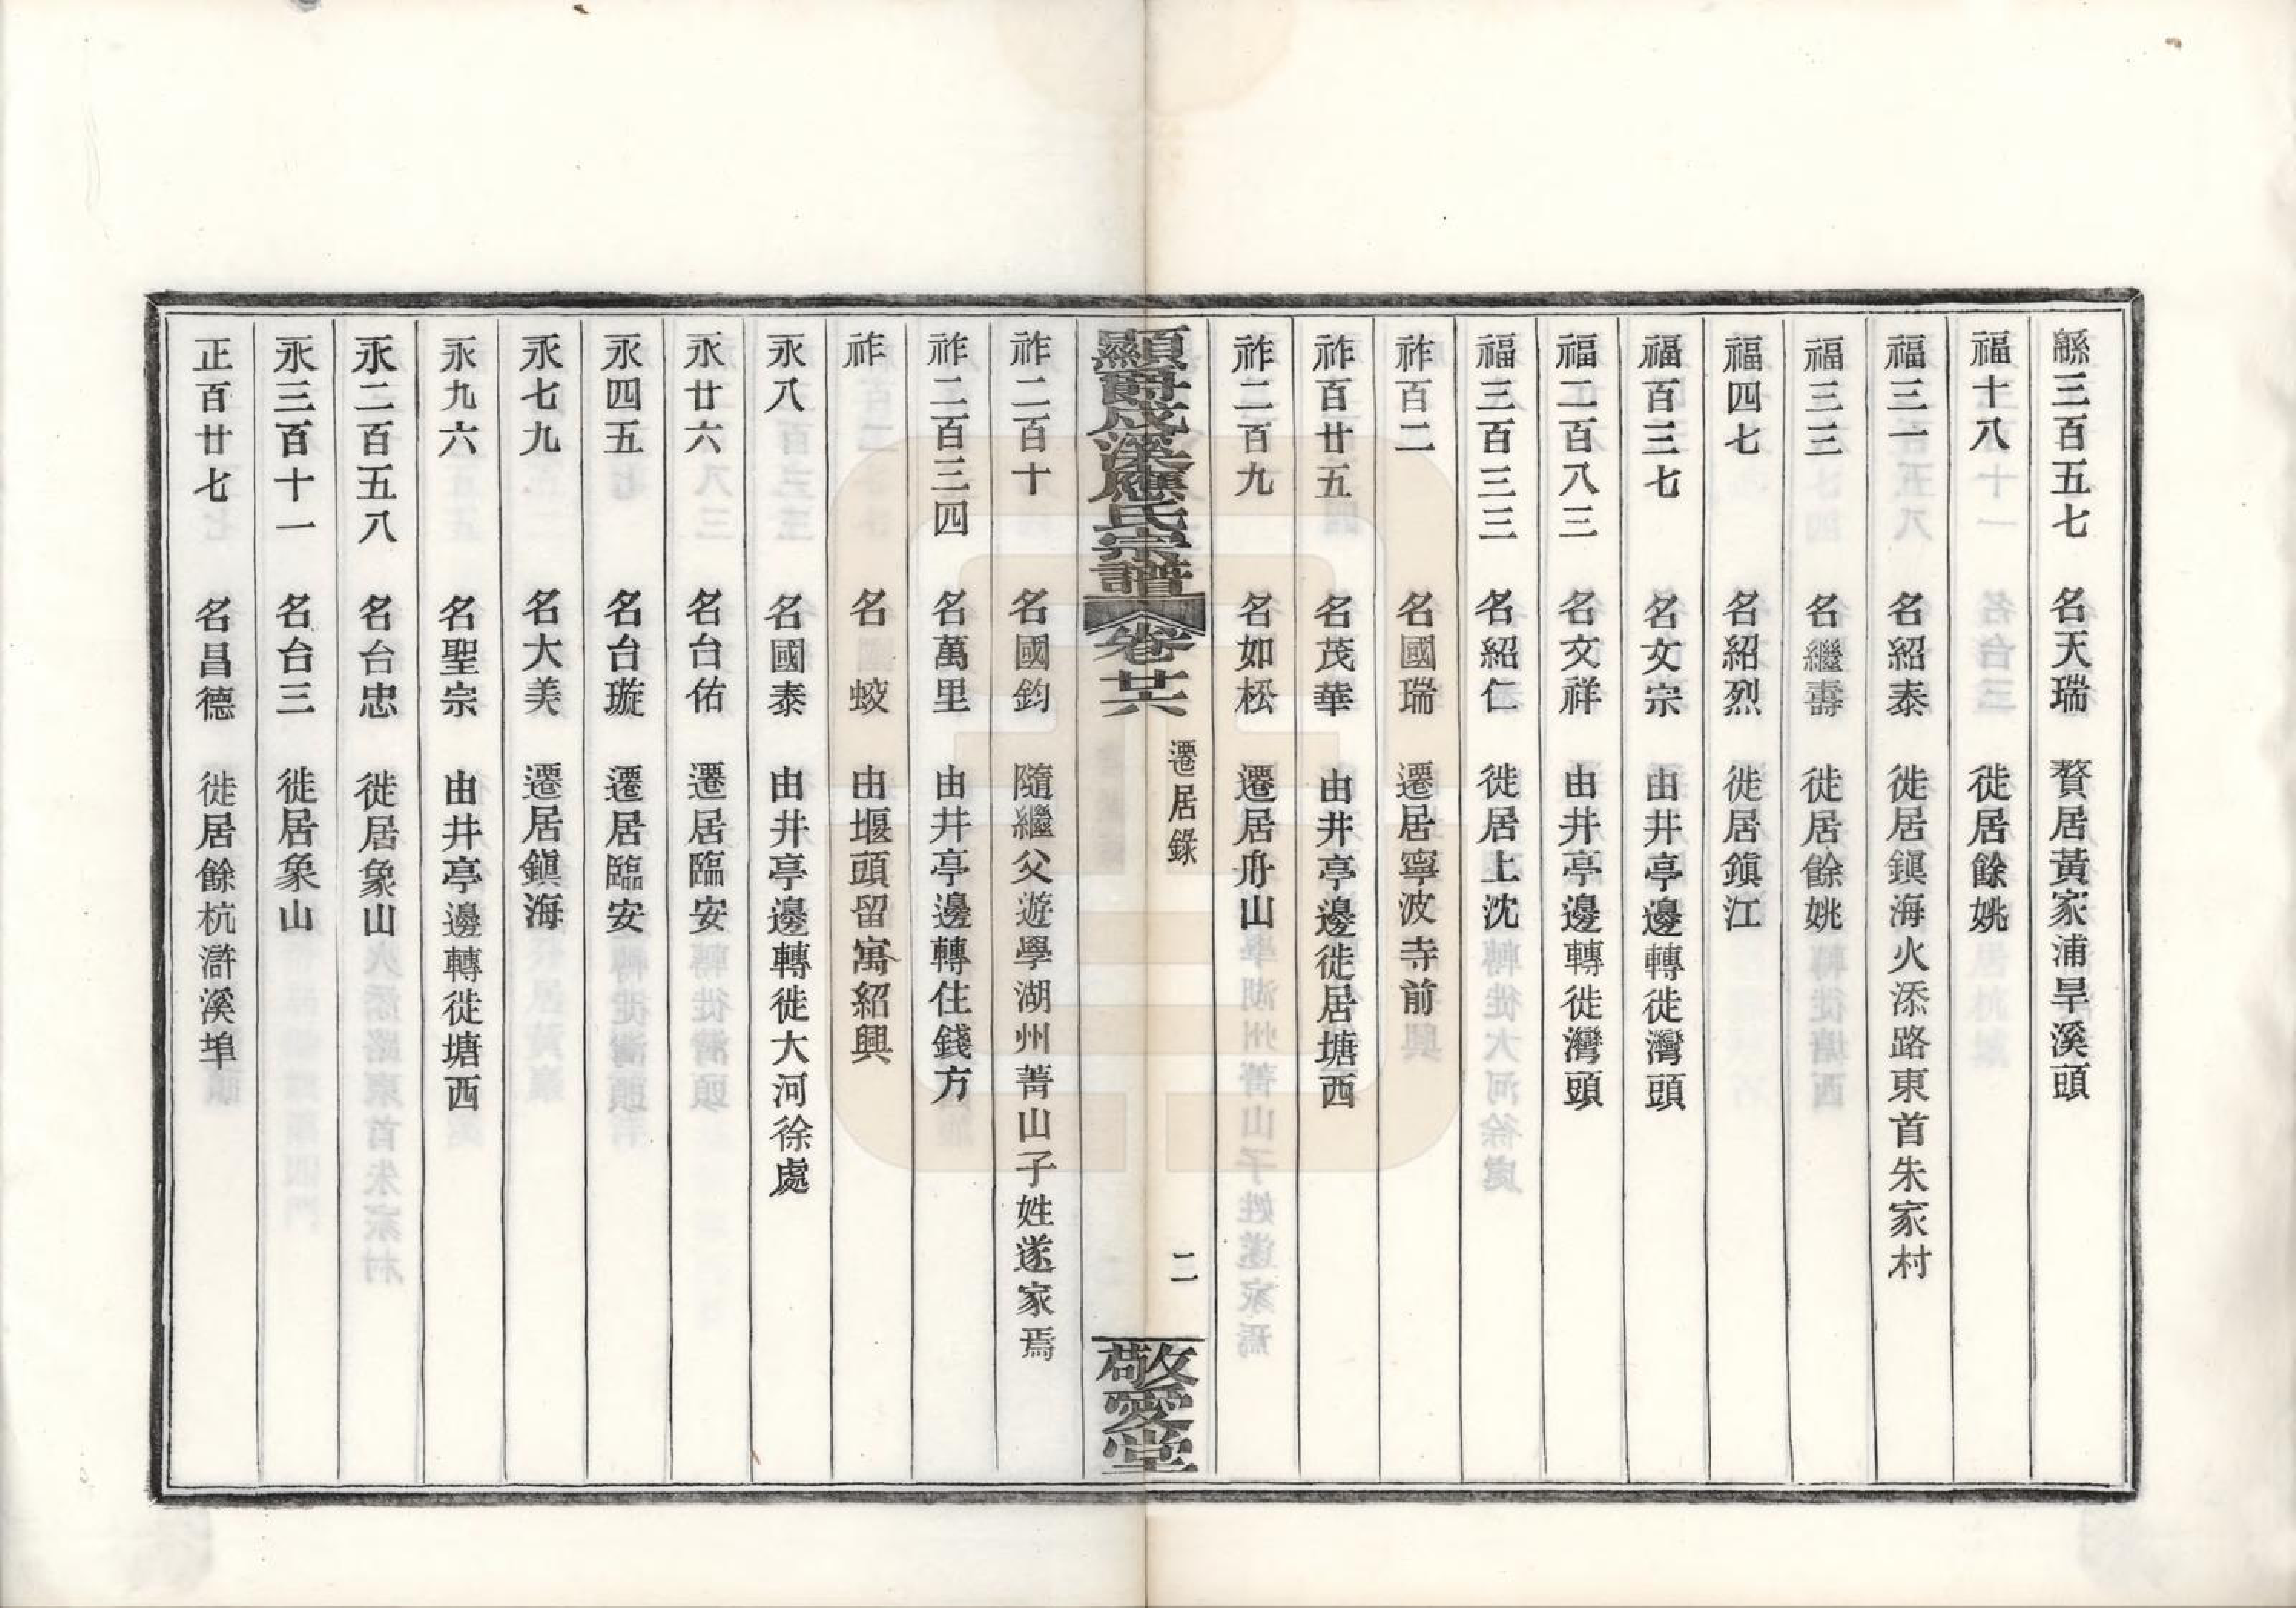 緜三百五七 名天瑞 贅居黃家浦旱溪頭
福十八 徙居餘姚
福三一 名紹泰 徙居鎭海火添路東首朱家村
福三三 名繼壽 徙居餘姚
福四七 名紹烈 徙居鎭江
福百三七 名文宗 由井亭邊轉徙灣頭
福二百八三 名文祥 由井亭邊轉徙灣頭
福三百三三 名紹仁 徙居上沈
祚百二 名國瑞 遷居寧波寺前
祚百廿五 名茂華 由井亭邊徙居塘西
祚二百九 名如松 遷居舟山
顯爵成溪應氏宗譜 卷廿六 遷居錄 二 敬愛堂
祚二百十 名國鈞 隨繼父遊學湖州菁山子姓遂家焉
祚二百三四 名萬里 由井亭邊轉住錢方
祚 名 蛟 由堰頭留寓紹興
永八 名國泰 由井亭邊轉徙大河徐處
永廿六 名台佑 遷居臨安
永四五 名台璇 遷居臨安
永七九 名大美 遷居鎭海
永九六 名聖宗 由井亭邊轉徙塘西
永二百五八 名台忠 徙居象山
永三百十一 名台三 徙居象山
正百廿七 名昌德 徙居餘杭滸溪埠